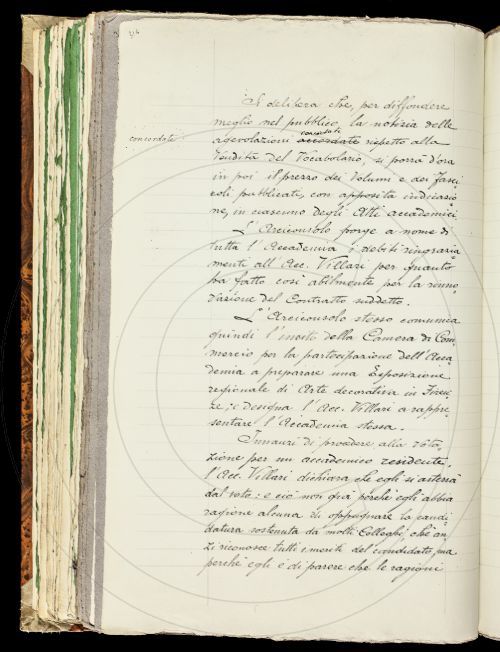 Si delibera che, per diffondere
meglio nel pubblico, la notizia delle
concordate
concordate
agevolazioni accordate rispetto alla
vendita del Vocabolario, si porrà d'ora
in poi il prezzo dei volumi e dei Fasci-
coli pubblicati, con apposita indicazio-
ne, in ciascuno degli Atti accademici.
L'Arciconsolo porge a nome di
tutta l'Accademia i debiti ringrazia-
menti all'Acc. Villari per quanto
ha fatto così abilmente per la rinno-
vazione del Contratto suddetto.
L'Arciconsolo stesso comunica
quindi l'invito della Camera di Com-
mercio per la partecipazione dell'Acca-
demia a preparare una Esposizione
regionale di Arte decorativa in Firen-
ze; e designa l'Acc. Villari a rappre-
sentare l'Accademia stessa.
Innanzi di procedere alla vota-
zione per un accademico residente,
l'Acc. Villari dichiara che egli si asterrà
dal voto: e ciò non già perché egli abbia
ragione alcuna di oppugnare la candi-
datura sostenuta da molti Colleghi, chè an-
zi riconosce tutti i meriti del candidato, ma
perchè egli è di parere che le ragioni